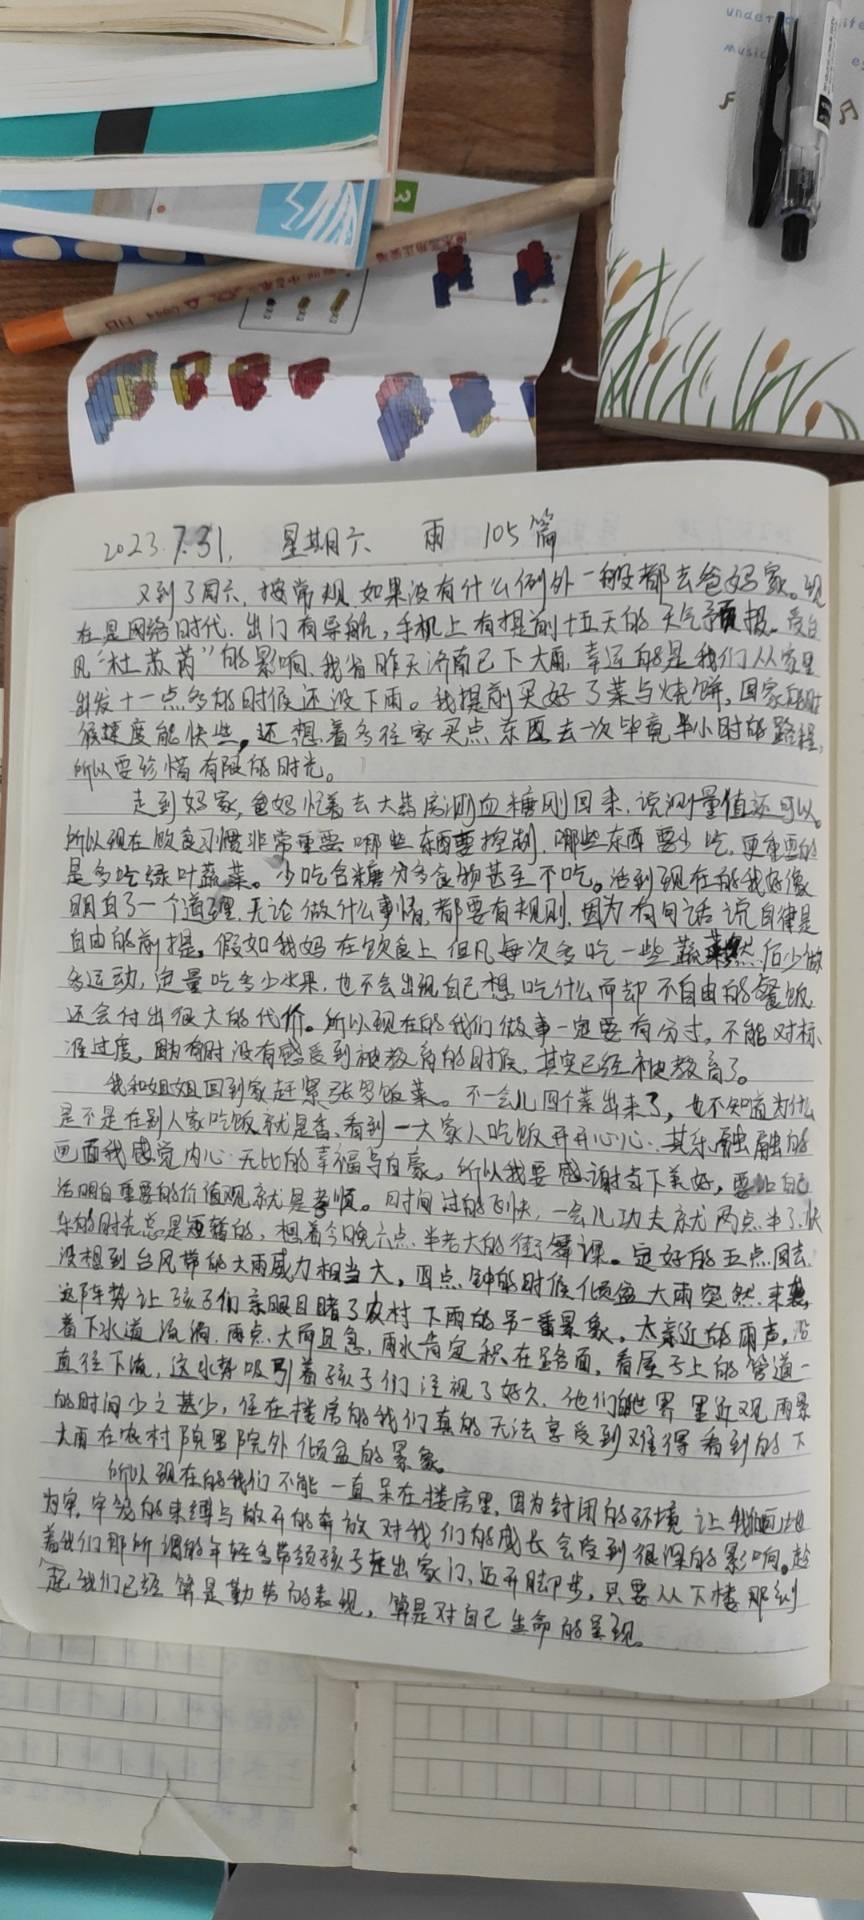 under
music
3
2023.7.31. 星期六 雨 105篇
又到了周六，按常规如果没有什么例外一般都去爸妈家。现
在是网络时代.出门有导航，手机上有提前十五天的天气预报.受台
风“杜苏芮”的影响.我省昨天济南已下大雨.幸运的是我们从家里
出发十一点多的时候还没下雨。我提前买好了菜与烧饼，回家的时
候速度能快些，还想着多往家买点东西.去一次毕竟半小时的路程，
所以要珍惜有限的时光。
走到妈家，爸妈忙着去大药房测血糖刚回来，说测量值还可以。
所以现在饮食习惯非常重要.哪些东西要控制，哪些东西要少吃，更重要的
是多吃绿叶蔬菜。少吃含糖分多食物甚至不吃。活到现在的我好像
明白了一个道理，无论做什么事情，都要有规则，因为有句话说自律是
自由的前提，假如我妈在饮食上但凡每次多吃一些蔬菜然后少做
多运动，定量吃多少水果，也不会出现自己想吃什么而却不自由的餐饭
还会付出很大的代价。所以现在的我们做事一定要有分寸，不能对标
准过度，因为有时没有感受到被教育的时候，其实已经被教育了。
我和姐姐回到家赶紧张罗饭菜。不一会儿四个菜出来了，也不知道为什么
是不是在别人家吃饭就是香，看到一大家人吃饭开开心心.其乐融融的
画面我感觉内心无比的幸福与自豪，所以我要感谢当下美好，要让自己
活明白重要的价值观就是孝顺。时间过的飞快，一会儿功夫就两点半了.快
乐的时光总是短暂的，想着今晚六点半老大的街舞课。定好的五点回去.
没想到台风带的大雨威力相当大，四点钟的时候倾盆大雨突然来袭，
这阵势让孩子们亲眼目睹了农村下雨的另一番景象。太亲近的雨声，沿
着下水道流淌.雨点大而且急，雨水肯定积在路面，看屋子上的管道一
直往下流，这水势吸引着孩子们注视了好久.他们的世界里近观雨景
的时间少之甚少，住在楼房的我们真的无法享受到难得看到的下
大雨在农村院里院外倾盆的景象。
所以现在的我们不能一直呆在楼房里，因为封闭的环境让我们画地
为牢，牢笼的束缚与敞开的奔放对我们的成长会受到很深的影响。趁
着我们那所谓的年轻多带领孩子走出家门，迈开脚步，只要从下楼那刻
起我们已经算是勤劳的表现，算是对自己生命的呈现。